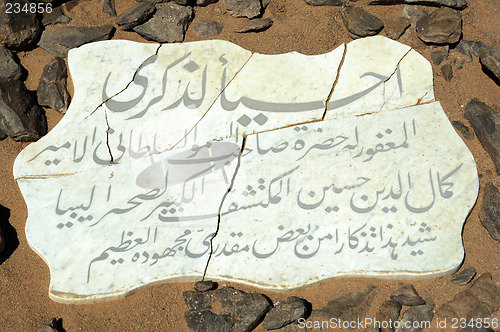 234856
احياً لذكرى
المغفور له حضرة صاحب السمو السلطانى الامير
كمال الدين حسين المكتشف الكبير لصحراء ليبيا
شيد هذا تذكارا من بعض مقدرى مجهوده العظيم
234856